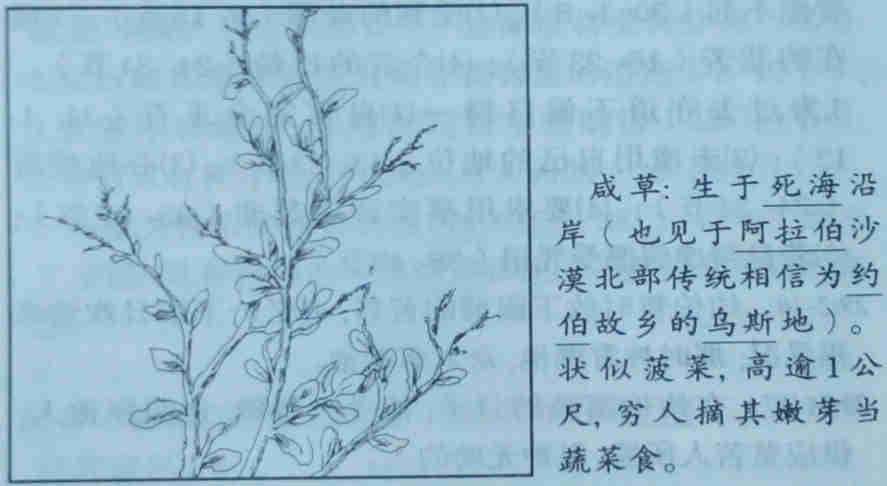 咸草：生于死海沿
岸（也见于阿拉伯沙
漠北部传统相信为约
伯故乡的乌斯地）。
状似菠菜，高逾1公
尺，穷人摘其嫩芽当
蔬菜食。